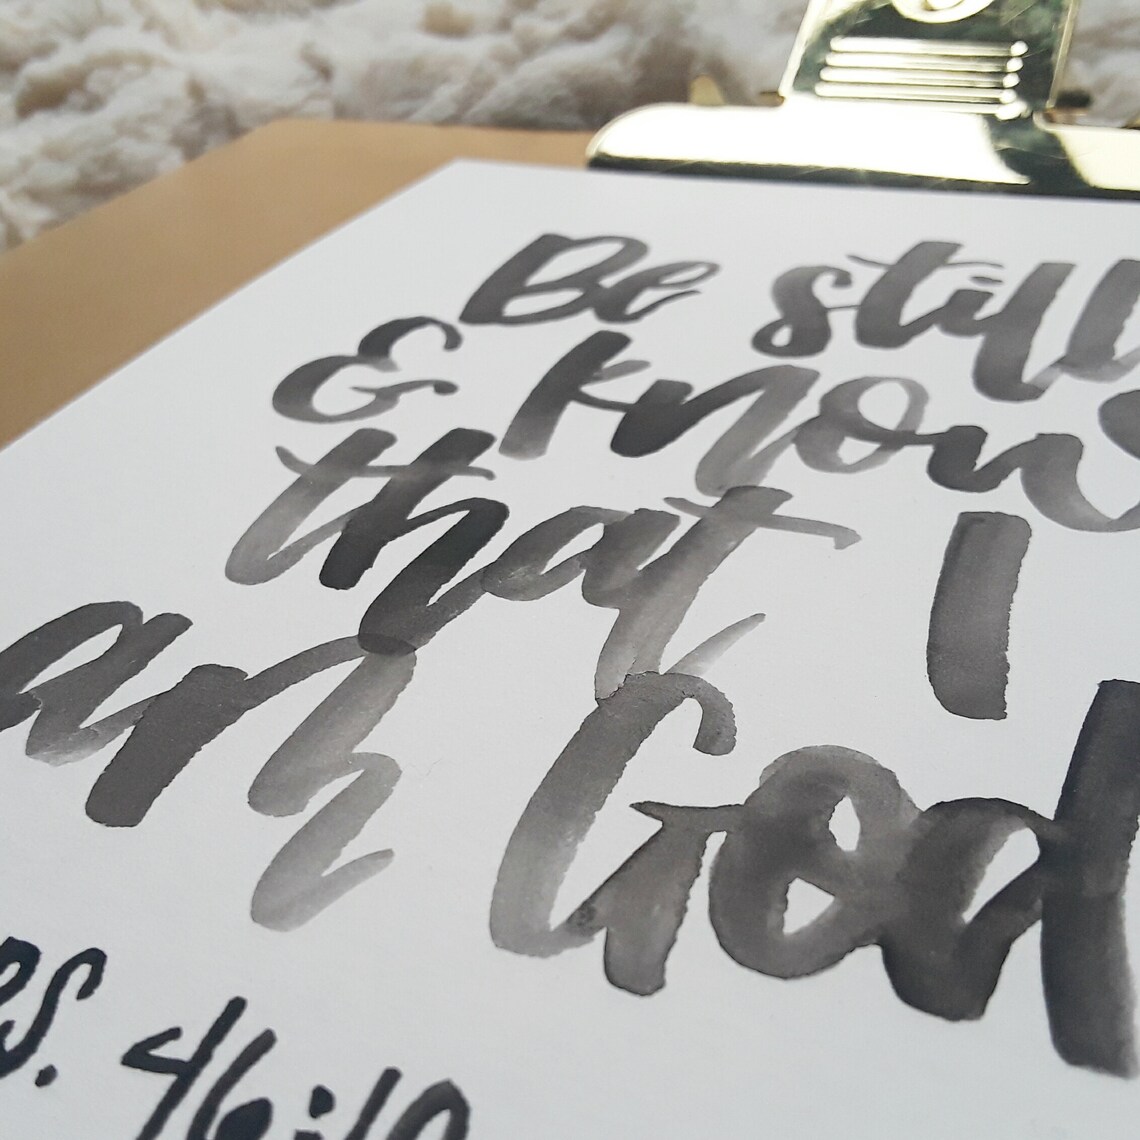 Be still
& know
that I
am God
PS. 46:10